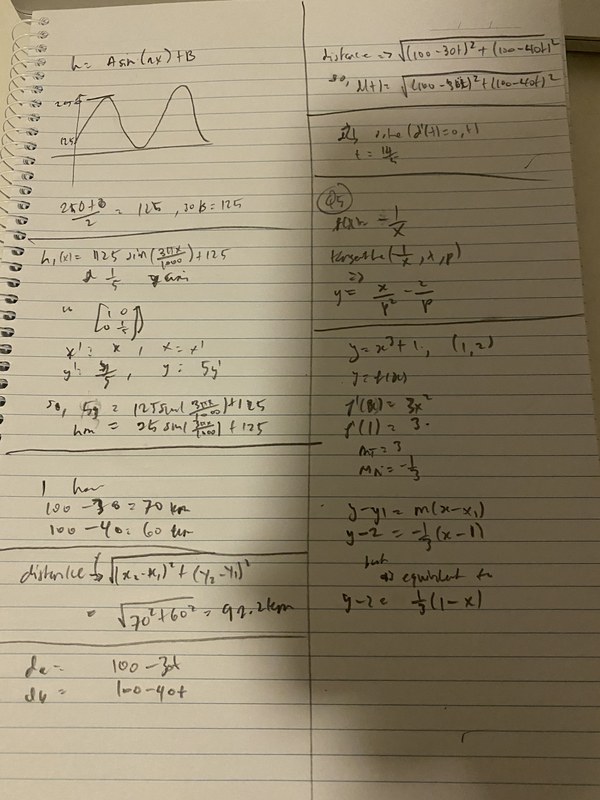 h = A sin(nx) + B
250
125
250+0/2 = 125, so B = 125
h₁(x) = 125 sin(3πx/1000) + 125
1/5
[1 0
0 1/5]
x' = x, x = x'
y' = y/5, y = 5y'
so, 5y = 125 sin(3πx/1000) + 125
hm = 25 sin(3πx/1000) + 125
1 hour
100 - 30 = 70 km
100 - 40 = 60 km
distance → √(x₂-x₁)² + (y₂-y₁)²
= √70² + 60² = 92.2 km
100 - 30t
100 - 40t
distance → √(100-30t)² + (100-40t)²
so, d(t) = √(100-30t)² + (100-40t)²
solve(d'(t)=0, t)
t = 14/5
Q5
-1/x
(-1/x, x, p)
⇒
y = x/p² - 2/p
y = x³ + 1, (1,2)
y = f(x)
f'(x) = 3x²
f'(1) = 3
m_T = 3
m_N = -1/3
y - y₁ = m(x - x₁)
y - 2 = -1/3(x - 1)
but
equivalent to
y - 2 = 1/3(1 - x)